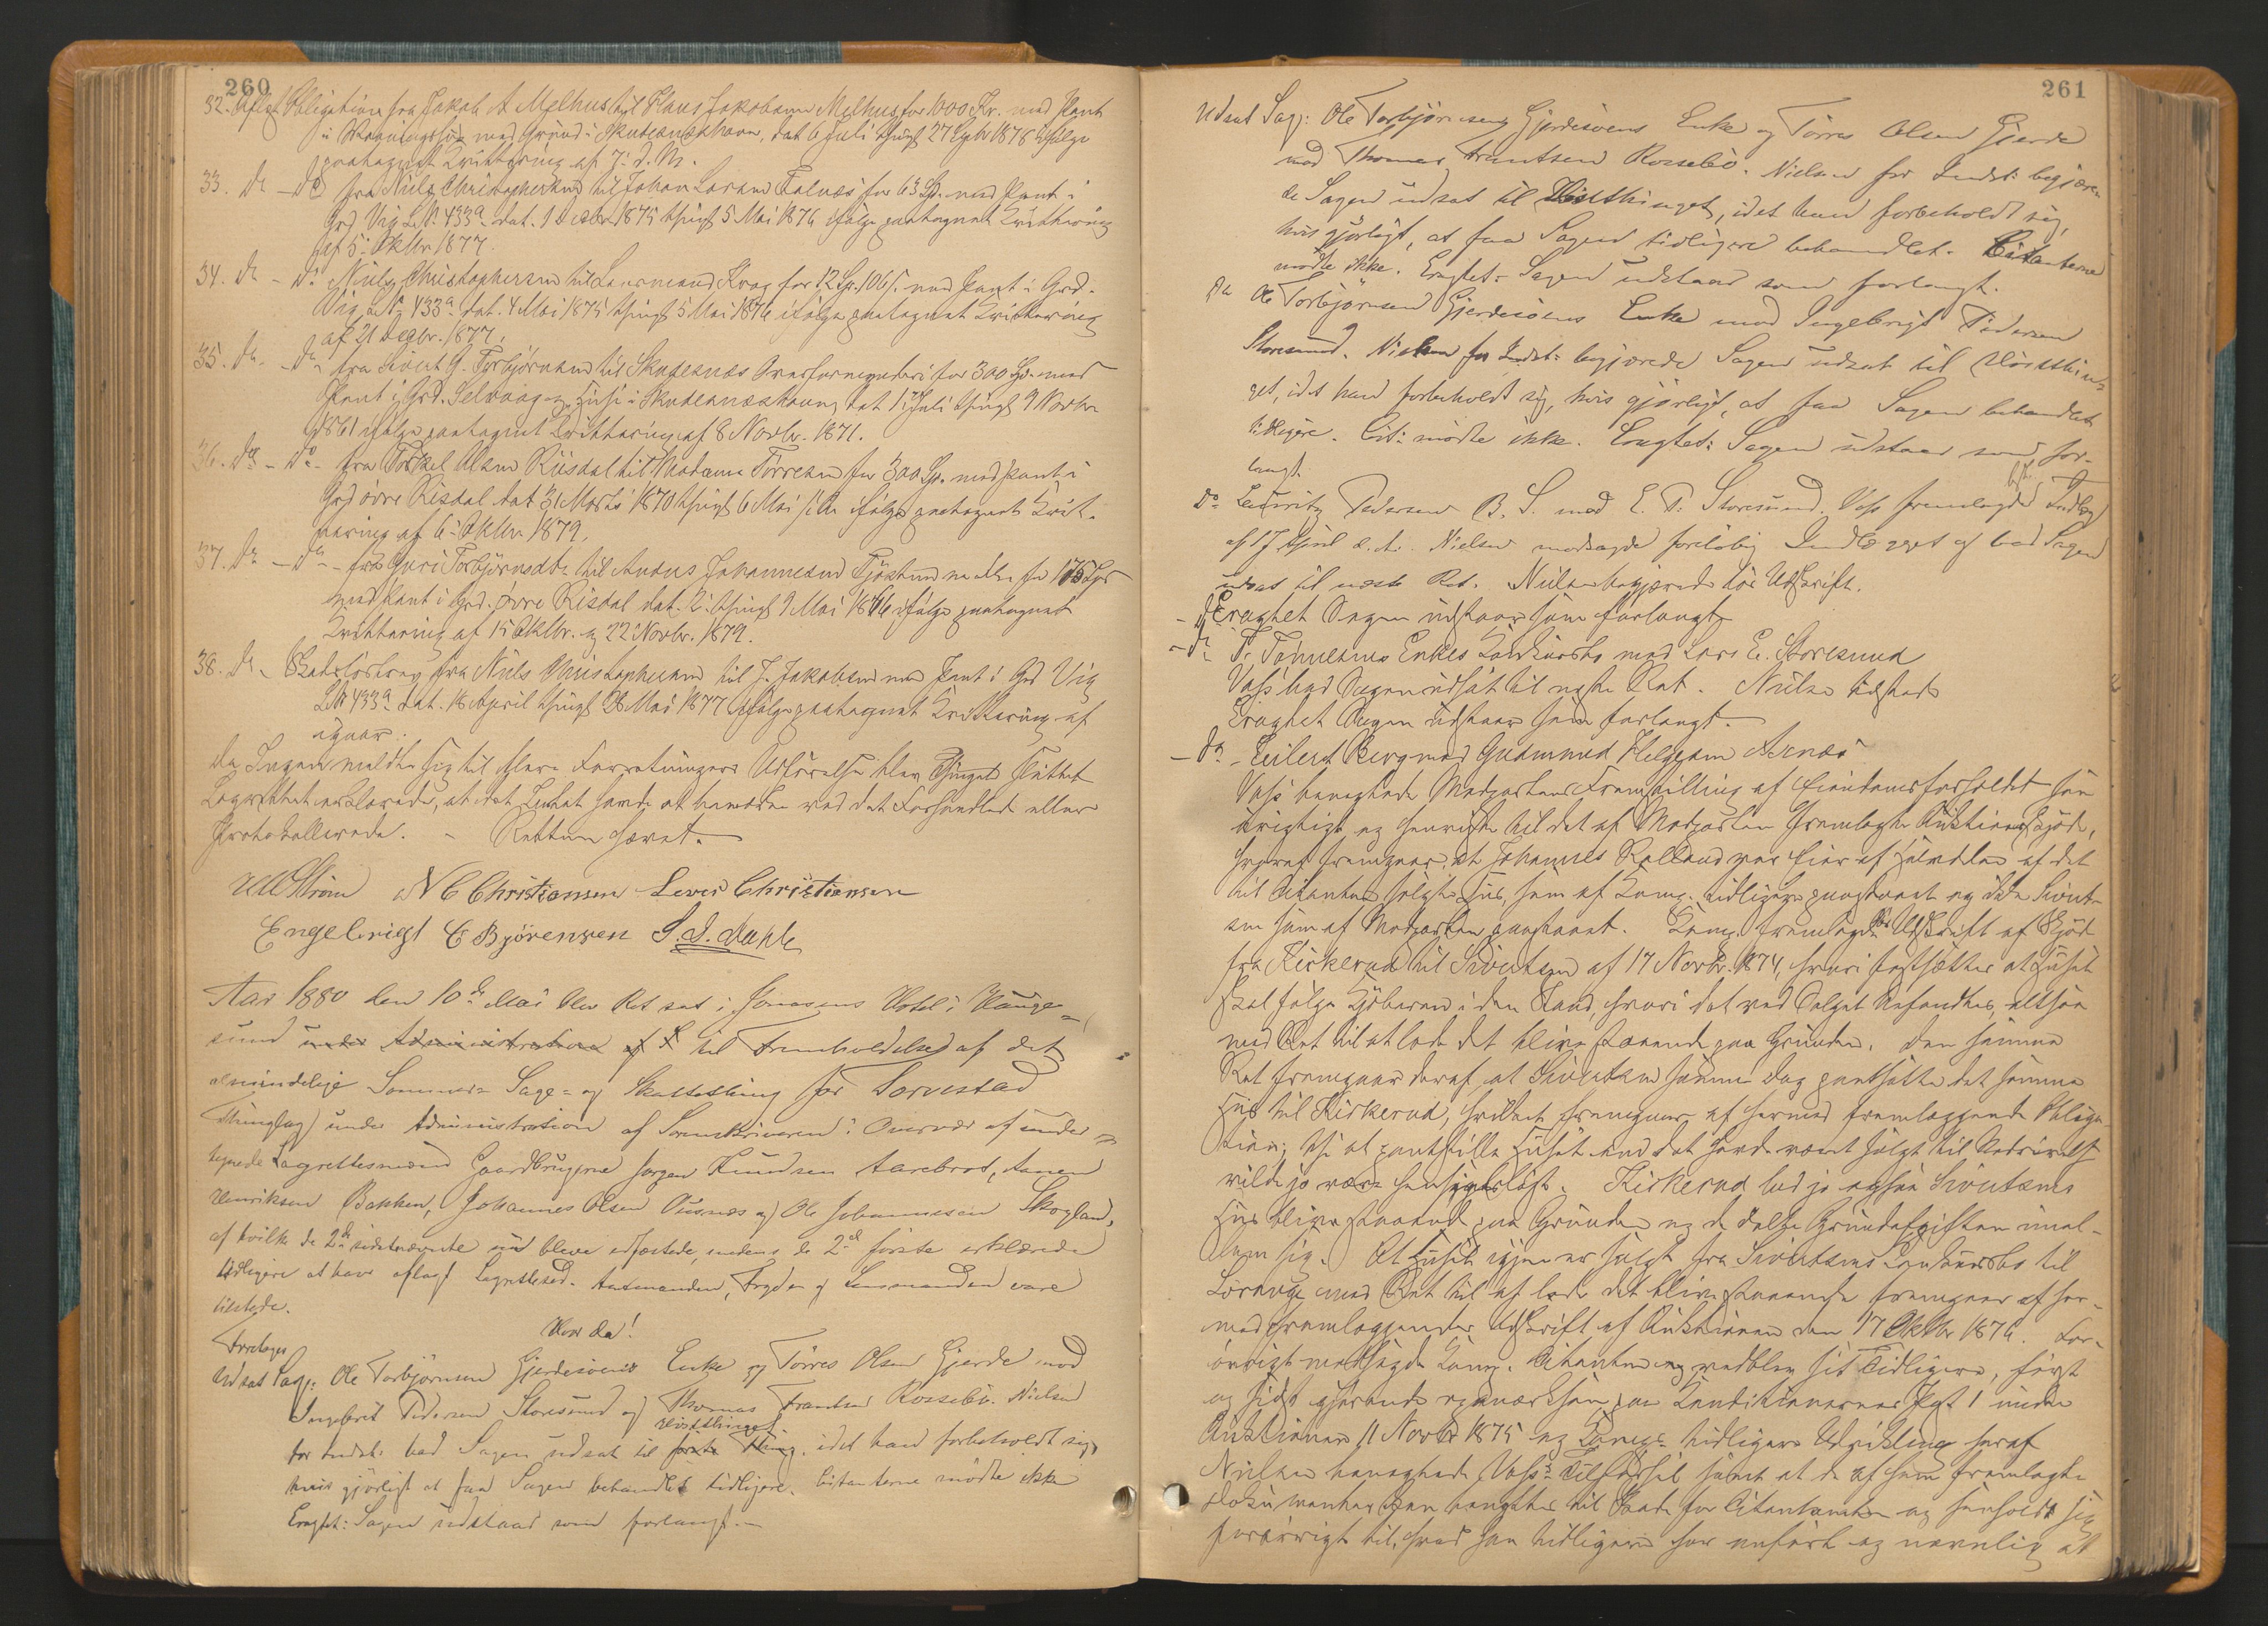 260
32. Aflst Obligation fra Jakob A Melhus til Claus Jakobsen Melhus for 1000 Kr. med Pant
i Vaaningshus med Grund i Skudesnæshavn, dat 6 Juli thingl 27 Sptr 1876 ifølge
paategnet Kvittering af J. d. M.
33. do - do fra Niels Christophersen til Johan Larsen Falnæs for 63 Sp. med Pant i
Grd Vig LNr 433a dat. 1 1875 thingl 5 Mai 1876 ifølge paategnet Kvittering
af 5 Oktbr 1877.
34. do - do Niels Christophersen til Lensmand Krog for 12 Sp. 106 s. med Pant i Grd.
Vig LNr 433a dat. 4 Mai 1875 thingl 5 Mai 1876 ifølge paategnet Kvittering
af 21 Decbr. 1877.
35. do - do fra Sivert G. Torbjørnsen til Skudesnæs for 300 Sp. med
Pant i Grd. Selvaag og Huse i Skudesnæshavn dat 17 Juli thingl 9 Novbr
1861 ifølge paategnet Kvittering af 8 Novbr. 1871.
36. do - do - fra Torkel Olsen Riisdal til Madame Tørresen for 300 Sp. med Pant i
Grd øvre Risdal dat 31 Marts 1870 thingl 6 Mai s. A. ifølge paategnet Kvit-
tering af 6 Oktbr 1879.
37. do - do - fra Guri Torbjørnsdtr til Anders Johannesen for 175 Spd
med Pant i Grd. øvre Risdal dat. 2 thingl 9 Mai 1876, ifølge paategnet
Kvittering af 15 Oktbr. og 22 Novbr. 1879.
38. do - Skadesløsbrev fra Niels Christophersen til J. Jakobsen med Pant i Grd Vig
LNr 433a dat. 16 April thingl 28 Mai 1877 ifølge paategnet Kvittering af
igaar.
Da Ingen meldte sig til flere Forretningers Udførelse blev Thinget sluttet
Lagrettet erklærede, at det Intet havde at bemærke ved det Forhandlede eller
Protokollerede. - Retten hævet.
N C Christiansen Lewis Christiansen
Engebrigt E Bjørensen S. S. Dahle
Aar 1880 den 10de Mai blev Ret sat i Jonasens Hotel i Hauge-
sund under Administration af S til Fremholdelse af det
almindelige Sommer- Sage- og Skattething for Torvestad
Thinglag under Administration af Sorenskriveren i Overvær af under-
tegnede Lagrettesmænd Gaardbrugerne Jørgen Knudsen Aarebrot, Aanen
Henriksen Bakken, Johannes Olsen Ousnæs og Ole Johannesen Skogland,
af hvilke de 2de sidstnævnte nu bleve edfæstede, medens de 2de første erklærede
tidligere at have aflagt Lagrettesed. Amtmanden, Fogden og Lensmanden vare
tilstede.
Hvor da!
Foretages
Udsat Sag: Ole Torbjørnsen Gjerdesøens Enke og Tørres Olsen Gjerde mod
Ingebrit Pedersen Storesund og Thomas Frantsen Rossebø. Nielsen
Høstthinget
for Indst: bad Sagen udsat til første Thing, idet han forbeholdt sig,
hvis gjørligt at faa Sagen behandlet tidligere. Citanterne mødte ikke
Eragtet: Sagen udstaar som forlangt.
261
Udsat Sag: Ole Torbjørnsens Gjerdesøens Enke og Tørres Olsen Gjerde
mod Thomas Frantsen Rossebø. Nielsen for Indst: begjære-
de Sagen udsat til Høstthinget, idet han forbeholdt sig,
hvis gjørligt, at faa Sagen tidligere behandlet. Citanterne
mødte ikke. Eragtet: Sagen udstaar som forlangt.
do Ole Torbjørnsen Gjerdesøens Enke mod Ingebrigt Pedersen
Storesund. Nielsen for Indst: begjærede Sagen udsat til Høstthin-
get, idet han forbeholdt sig, hvis gjørligt, at faa Sagen behandlet
tidligere. Cit: mødte ikke. Eragtet: Sagen udstaar som for-
langt.
do Lauritz Pedersens B. S. mod E. P. Storesund. Vass fremlagde Indlæg
af 17 April d. A. Nielsen modsagde foreløbig Indlægget og bad Sagen
udsat til næste Ret. Nielsen begjærede lov Udskrift.
Eragtet Sagen udstaar som forlangt
- do F. Tønnesens Enkes Konkursbo mod Lars E. Storesund
Vass bad Sagen udsat til neste Ret. Nielsen tilstede
Eragtet Sagen udstaar som forlangt.
- do - Eilert Berg mod Gudmund Helgesen Aarnæs
Vass benegtede Modpartens Fremstilling af Eiendomsforholdet som
urigtigt og henviste til det af Modparten fremlagte Auktionsskjøde,
hvoraf fremgaar, at Johannes Rolland var Eier af Halvdelen af det
til Citanten solgte Hus, som af Komp. tidligere paastaaet og ikke Sivert-
sen som af Modparten paastaaet. Komp. fremlagde Udskrift af Skjøde
fra Kirkerud til Sivertsen af 17 Novbr. 1874, hvori fastsættes at Huset
skal følge Kjøberen i den Stand, hvori det ved Salget befandtes, altsaa
med Ret til at lade det blive staaende paa Grunden. Den samme
Ret fremgaar deraf at Sivertsen samme Dag pantsatte det samme
Hus til Kirkerud, hvilket fremgaar af hermed fremlæggende Obliga-
tion; thi at pantstille Huset hvis det havde været solgt til Nedrivelse
vilde jo være hensigtsløst. Kirkerud lod jo ogsaa Sivertsens
Hus blive staaende paa Grunden og de delte Grundafgiften imel-
lem sig. At Huset igjen er solgt fra Sivertsens Konkursbo til
Lorange med Ret til at lade det blive staaende fremgaar af her-
med fremlæggende Udskrift af Auktionen den 17 Oktbr 1876. For-
øvrigt modsagde Komp. Citanten og vedblev sit Tidligere, først
og sidst gjørende opmærksom paa Konditionernes Pgt 1 under
Auktionen 11 Novbr 1875 og Komps tidligere Udvikling heraf
Nielsen benegtede Vass's Tilførsel samt at de af ham fremlagte
Dokumenter kan benyttes til Skade for Citantens og henholdt sig
forøvrigt til, hvad han tidligere har anført og navnlig at